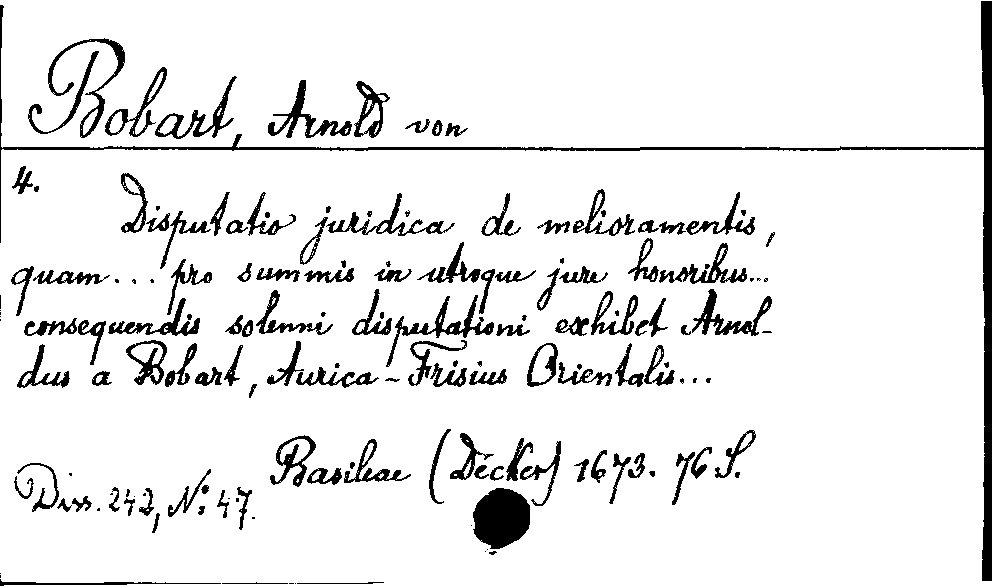 Bobart, Arnold von
4.
Disputatio juridica de melioramentis,
quam... pro summis in utroque jure honoribus...
consequendis solenni disputationi exhibet Arnol-
dus a Bobart, Aurica-Frisius Orientalis...
Basileae (Decker) 1673. 76 S.
Diss. 242, No: 47.